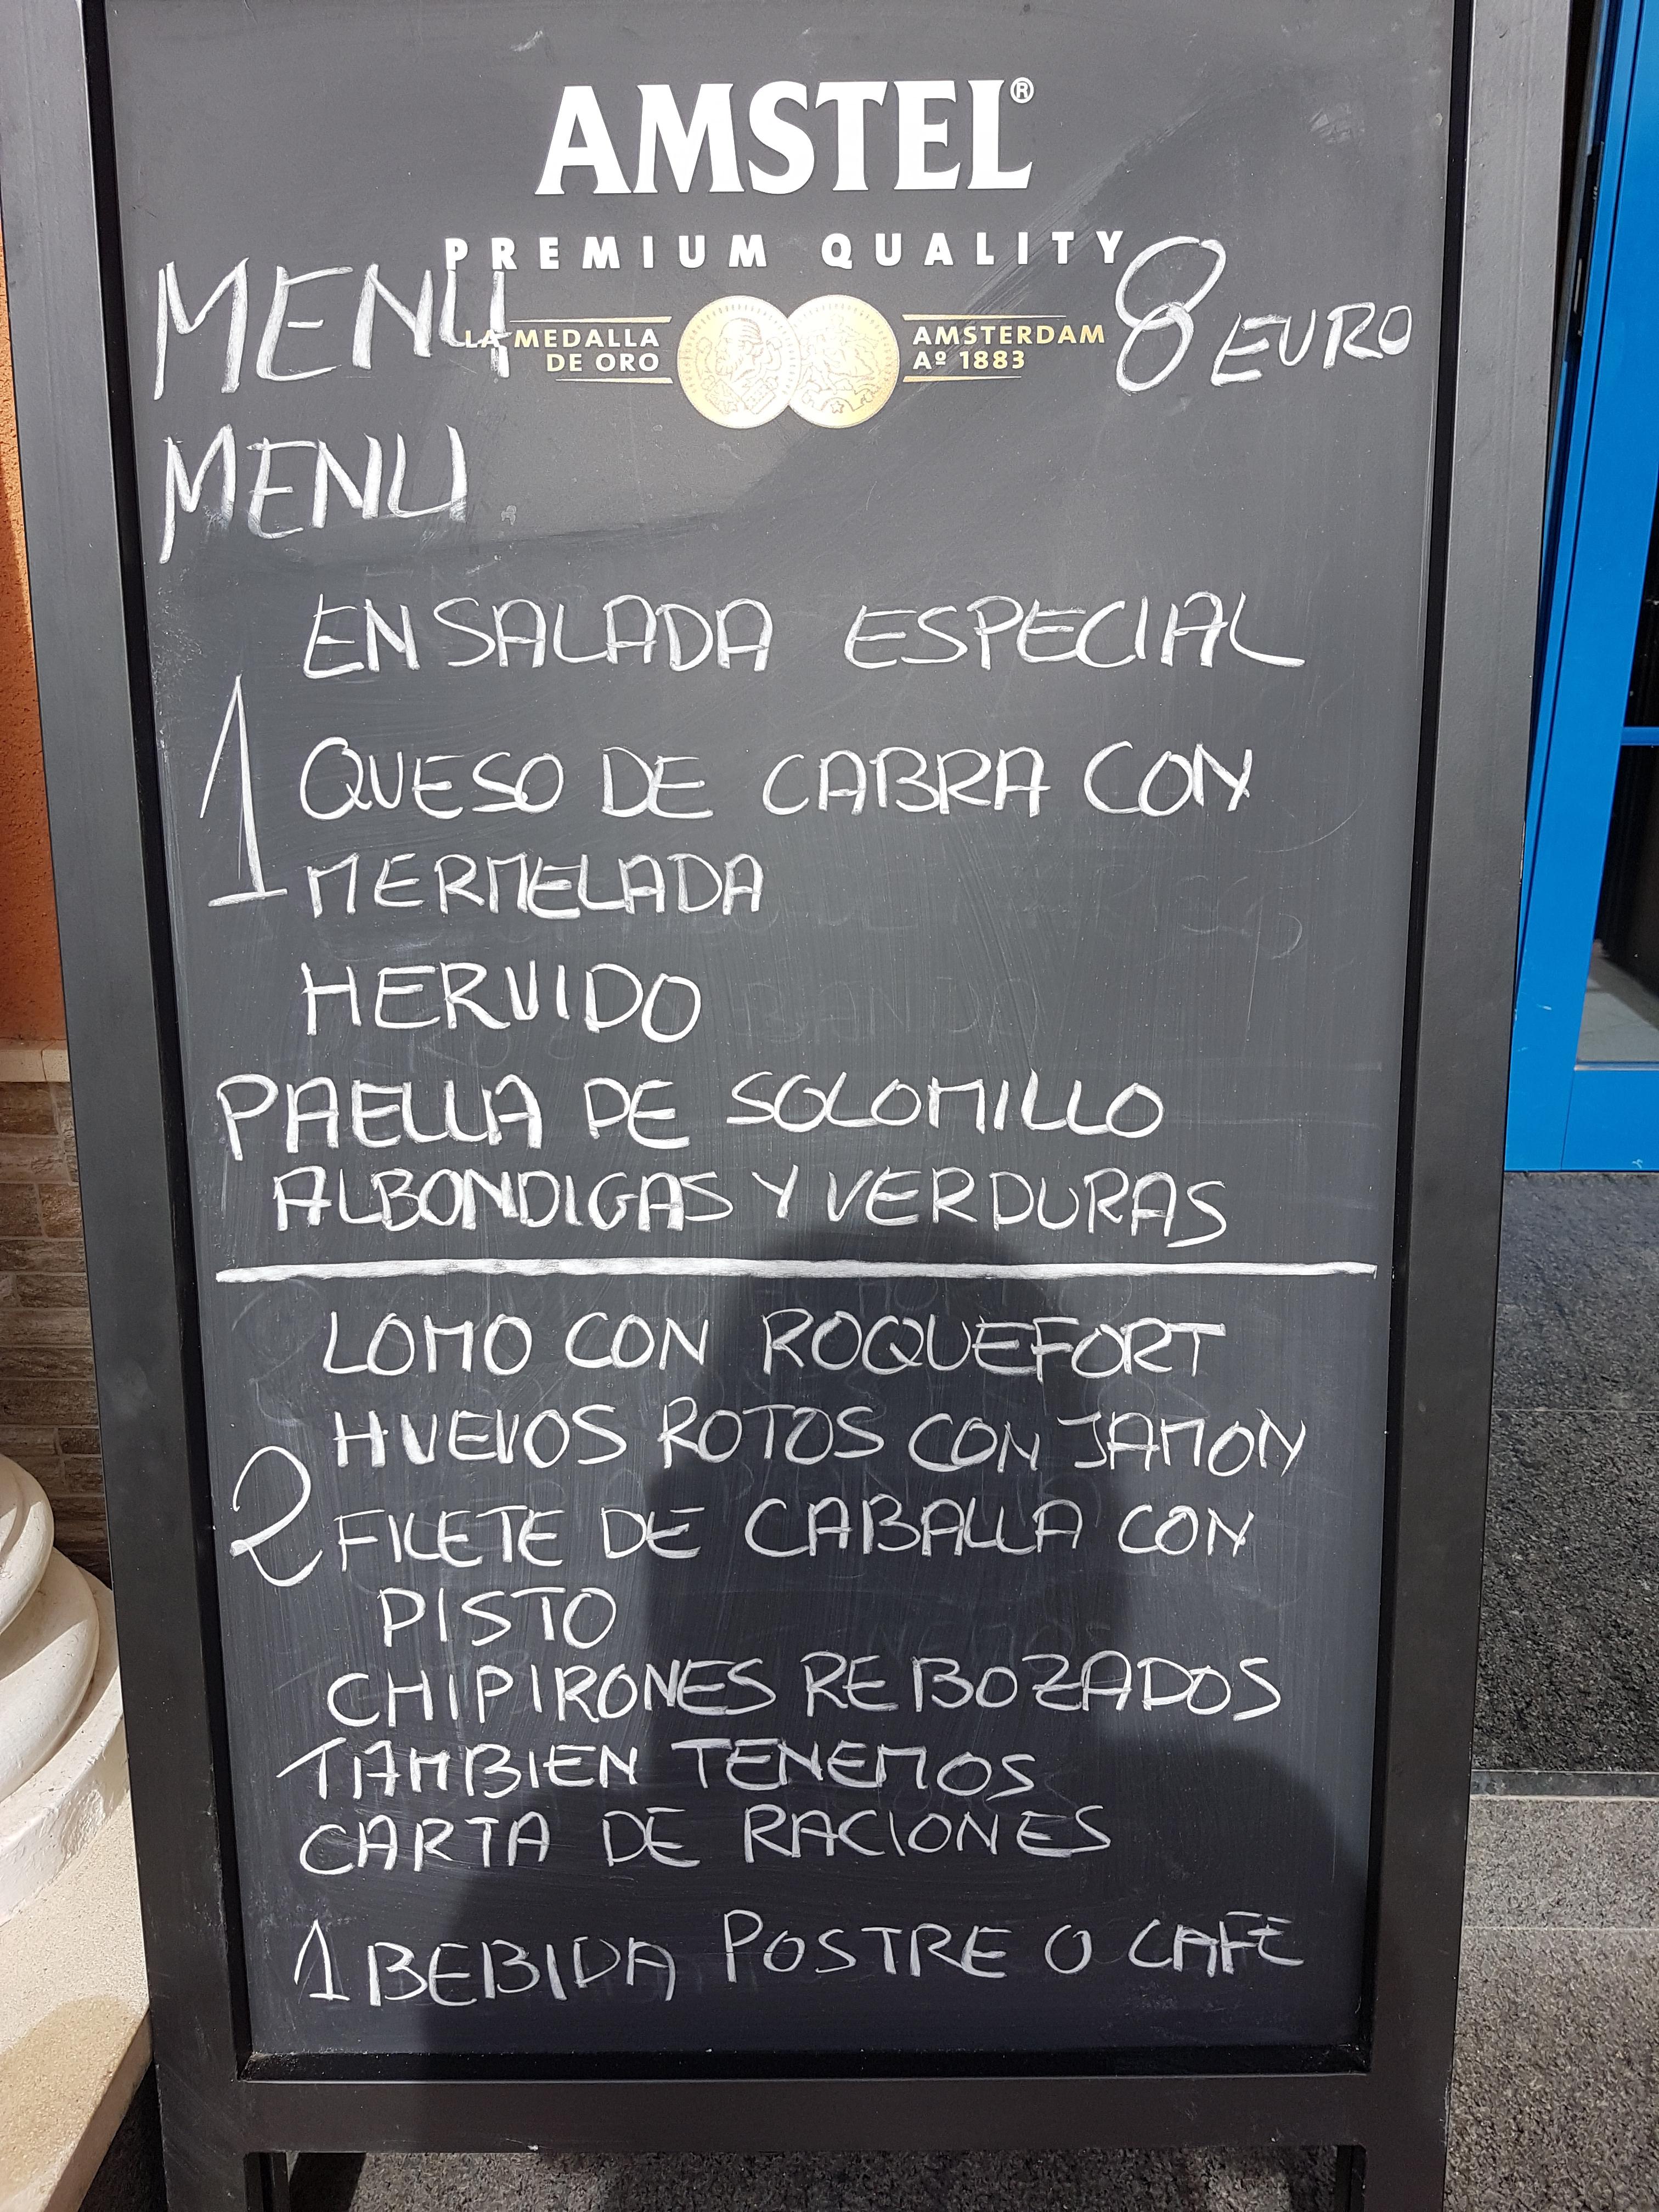 AMSTEL®
PREMIUM QUALITY
MENU 8 EURO
LA MEDALLA DE ORO
AMSTERDAM Aº 1883
MENU
ENSALADA ESPECIAL
1 QUESO DE CABRA CON
MERMELADA
HERVIDO
PAELLA DE SOLOMILLO
ALBONDIGAS Y VERDURAS
LOMO CON ROQUEFORT
HUEVOS ROTOS CON JAMON
2 FILETE DE CABALLA CON
PISTO
CHIPIRONES REBOZADOS
TAMBIEN TENEMOS
CARTA DE RACIONES
1 BEBIDA POSTRE O CAFE